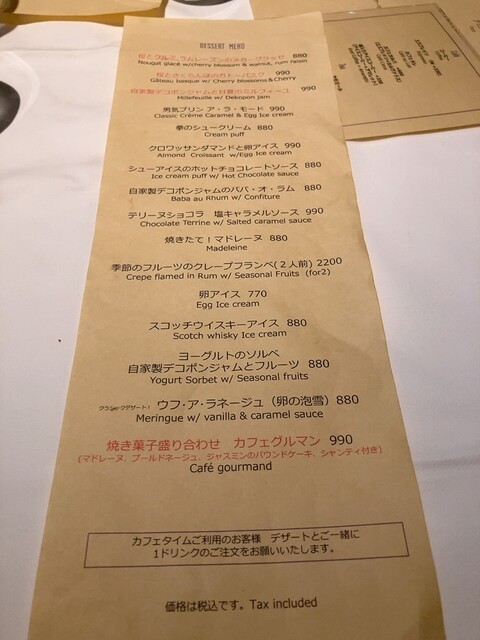 DESSERT MENU
桜とクルミ、ラムレーズンのヌガーグラッセ 880
Nougat glacé w/cherry blossom & walnut, rum raisin
桜とさくらんぼのガトーバスク 990
Gâteau basque w/Cherry blossoms & Cherry
自家製デコポンジャムと日夏のミルフィーユ 990
Millefeuille w/ Dekopon jam
男気プリン ア・ラ・モード 990
Classic Crème Caramel & Egg Ice cream
拳のシュークリーム 880
Cream puff
クロワッサンダマンドと卵アイス 990
Almond Croissant w/Egg Ice cream
シューアイスのホットチョコレートソース 880
Ice cream puff w/ Hot Chocolate sauce
自家製デコポンジャムのババ・オ・ラム 880
Baba au Rhum w/ Confiture
テリーヌショコラ 塩キャラメルソース 990
Chocolate Terrine w/ Salted caramel sauce
焼きたて！マドレーヌ 880
Madeleine
季節のフルーツのクレープフランベ(２人前) 2200
Crepe flamed in Rum w/ Seasonal Fruits (for2)
卵アイス 770
Egg Ice cream
スコッチウイスキーアイス 880
Scotch whisky Ice cream
ヨーグルトのソルベ
自家製デコポンジャムとフルーツ 880
Yogurt Sorbet w/ Seasonal fruits
クラシックデザート！ ウフ・ア・ラネージュ（卵の泡雪）880
Meringue w/ vanilla & caramel sauce
焼き菓子盛り合わせ カフェグルマン 990
(マドレーヌ、ブールドネージュ、ジャスミンのパウンドケーキ、シャンティ付き)
Café gourmand
カフェタイムご利用のお客様 デザートとご一緒に
１ドリンクのご注文をお願いいたします。
価格は税込です。Tax included